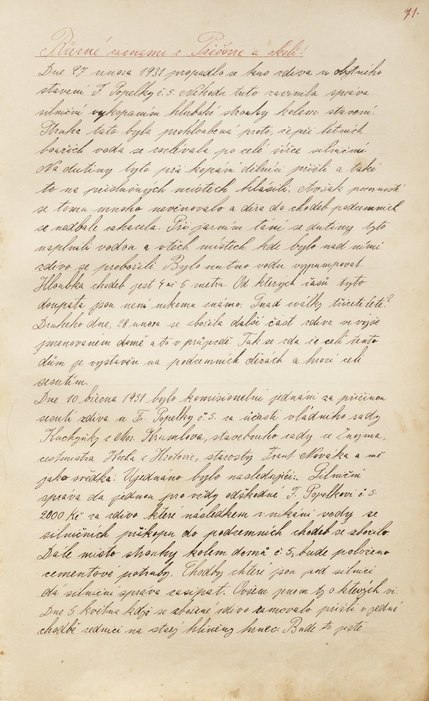 71.
Různé záznamy z Příštpa a okolí!
Dne 27. února 1931 propadlo se kus zdiva u obytného
stavení F. Popelky č. 5. Nehodu tuto zavinila správa
silniční vykopáním hluboké strouhy kolem stavení.
Strouha tato byla prohloubena proto, že při letních
bouřích voda se rozlévala po celé šířce silnice.
Na dutiny tyto při kopání dělníci přišli a také
to na příslušných místech hlásili. Avšak pozornosti
se tomu mnoho nevěnovalo a díra do chodeb podzemních
se nedbale zakryla. Při jarním tání se dutiny tyto
naplnili vodou a v těch místech kde bylo nad nimi
zdivo se probořili. Bylo nutno vodu vypumpovat.
Hloubka chodeb jest 4 až 6 metrů. Od kterých časů tyto
doupata jsou není nikomu známo. Snad z války třicetileté?
Druhého dne, 28 února se zbořila další část zdiva ve výše
jmenovaném domě a to v průjezdě. Tak se zdá že celý tento
dům je vystavěn na podzemních dírách a hrozí celý
sesutím.
Dne 10. března 1931 bylo komisionelní jednání za příčinou
sesutí zdiva u F. Popelky č. 5. za účasti vládního rady
z Mor. Krumlova, stavebního rady ze Znojma,
cestmistra z Hrotovic, starosty Frant Nováka a mě
jako svědka. Ujednáno bylo následující: Silniční
správa dá jednou pro vždy odškodné F. Popelkovi č. 5.
2000 Kč za zdivo které následkem vnikání vody ze
silničních příkopů do podzemních chodeb se zbořilo.
Dále místo strouhy kolem domu č. 5, bude položeno
cementové potruby. Chodby které jsou pod silnicí
dá silniční správa zasypat. Ovšem jenom ty o kterých ví.
Dne 5 května když se zbořené zdivo rovnovalo přišli v jedné
chodbě zedníci na starý hliněný hrnec. Bude to jistě